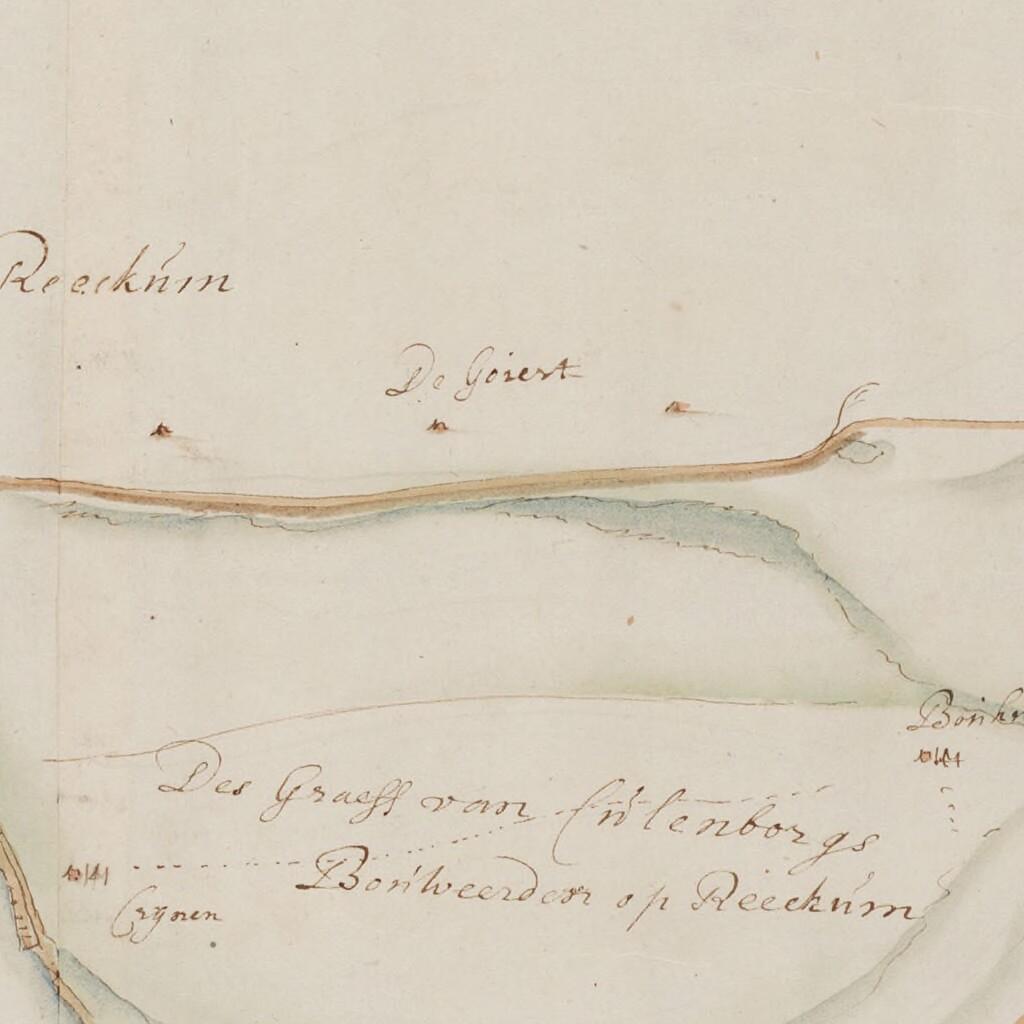 Reeckům
De Goiert
Des Graeff van Cůlenborgs
Boůweerder op Reeckům
Crynen